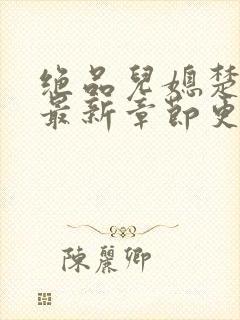 绝品兒媳楚
最新章節更
陳麗卿